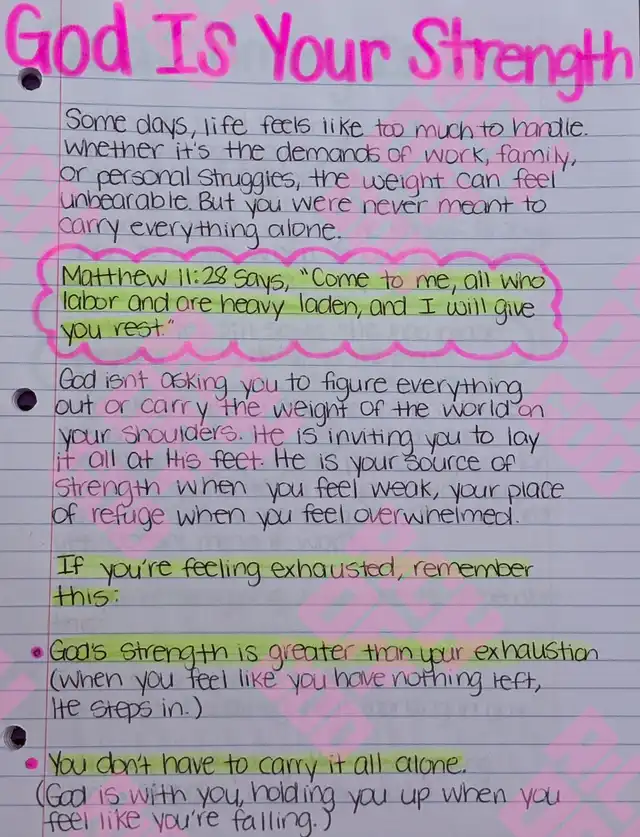 God Is Your Strength
Some days, life feels like too much to handle.
Whether it's the demands of work, family,
or personal struggles, the weight can feel
unbearable. But you were never meant to
carry everything alone.
Matthew 11:28 says, "Come to me, all who
labor and are heavy laden, and I will give
you rest."
God isnt asking you to figure everything
out or carry the weight of the world on
your shoulders. He is inviting you to lay
it all at His feet. He is your source of
strength when you feel weak, your place
of refuge when you feel overwhelmed.
If you're feeling exhausted, remember
this:
• God's strength is greater than your exhaustion
(When you feel like you have nothing left,
He steps in.)
• You don't have to carry it all alone.
(God is with you, holding you up when you
feel like you're falling.)